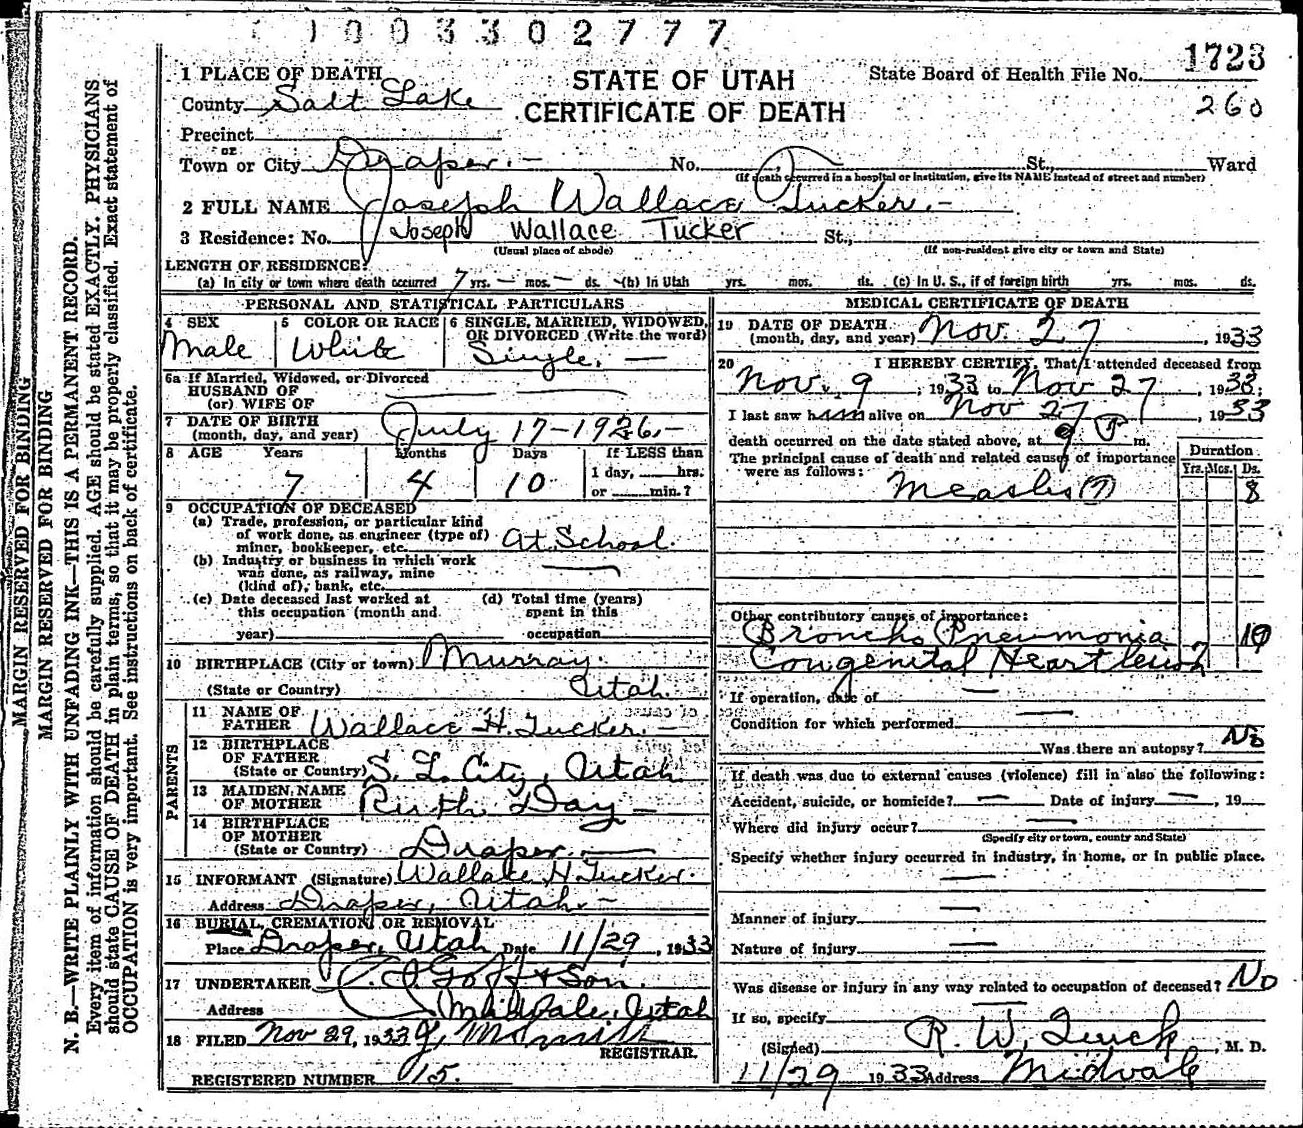 1003302777
1723
260
STATE OF UTAH
CERTIFICATE OF DEATH
State Board of Health File No.
MARGIN RESERVED FOR BINDING
MARGIN RESERVED FOR BINDING
N. B.—WRITE PLAINLY WITH UNFADING INK—THIS IS A PERMANENT RECORD.
Every item of information should be carefully supplied. AGE should be stated EXACTLY. PHYSICIANS
should state CAUSE OF DEATH in plain terms, so that it may be properly classified. Exact statement of
OCCUPATION is very important. See instructions on back of certificate.
1 PLACE OF DEATH
County Salt Lake
Precinct
or
Town or City Draper.— No. St., Ward
(If death occurred in a hospital or institution, give its NAME instead of street and number)
2 FULL NAME Joseph Wallace Tucker.—
3 Residence: No. Joseph Wallace Tucker St.,
(Usual place of abode) (If non-resident give city or town and State)
LENGTH OF RESIDENCE:
(a) In city or town where death occurred 7 yrs. — mos. — ds. (b) In Utah yrs. mos. ds. (c) In U. S., if of foreign birth yrs. mos. ds.
PERSONAL AND STATISTICAL PARTICULARS
4 SEX
Male
5 COLOR OR RACE
White
6 SINGLE, MARRIED, WIDOWED,
OR DIVORCED (Write the word)
Single. —
6a If Married, Widowed, or Divorced
HUSBAND OF
(or) WIFE OF
7 DATE OF BIRTH
(month, day, and year) July 17-1926.-
8 AGE Years Months Days If LESS than
1 day, hrs.
or min.?
7 4 10
9 OCCUPATION OF DECEASED
(a) Trade, profession, or particular kind
of work done, as engineer (type of)
miner, bookkeeper, etc. At School.
(b) Industry or business in which work
was done, as railway, mine
(kind of), bank, etc.
(c) Date deceased last worked at
this occupation (month and
year)
(d) Total time (years)
spent in this
occupation
10 BIRTHPLACE (City or town) Murray.
(State or Country) Utah
PARENTS
11 NAME OF
FATHER Wallace H. Tucker.—
12 BIRTHPLACE
OF FATHER
(State or Country) S. L. City, Utah
13 MAIDEN NAME
OF MOTHER Ruth Day —
14 BIRTHPLACE
OF MOTHER
(State or Country) Draper. —
15 INFORMANT (Signature) Wallace H. Tucker.
Address Draper, Utah.—
16 BURIAL, CREMATION, OR REMOVAL
Place Draper, Utah Date 11/29, 1933
17 UNDERTAKER Goff & Son.
Address Midvale, Utah
18 FILED Nov 29, 1933
REGISTRAR.
REGISTERED NUMBER 15.
MEDICAL CERTIFICATE OF DEATH
19 DATE OF DEATH
(month, day, and year) Nov. 27, 1933
20 I HEREBY CERTIFY, That I attended deceased from
Nov. 9, 1933 to Nov 27, 1933;
I last saw him alive on Nov 27, 1933
death occurred on the date stated above, at 9 P m.
The principal cause of death and related causes of importance
were as follows:
Duration
Yrs. Mos. Ds.
Measles (7) 8
Other contributory causes of importance:
Broncho Pneumonia 10
Congenital Heart lesion 7
If operation, date of —
Condition for which performed —
Was there an autopsy? No
If death was due to external causes (violence) fill in also the following:
Accident, suicide, or homicide? — Date of injury —, 19
Where did injury occur? —
(Specify city or town, county and State)
Specify whether injury occurred in industry, in home, or in public place.
—
Manner of injury —
Nature of injury —
Was disease or injury in any way related to occupation of deceased? No
If so, specify —
(Signed) R. W. Quick, M. D.
11/29 1933 Address Midvale